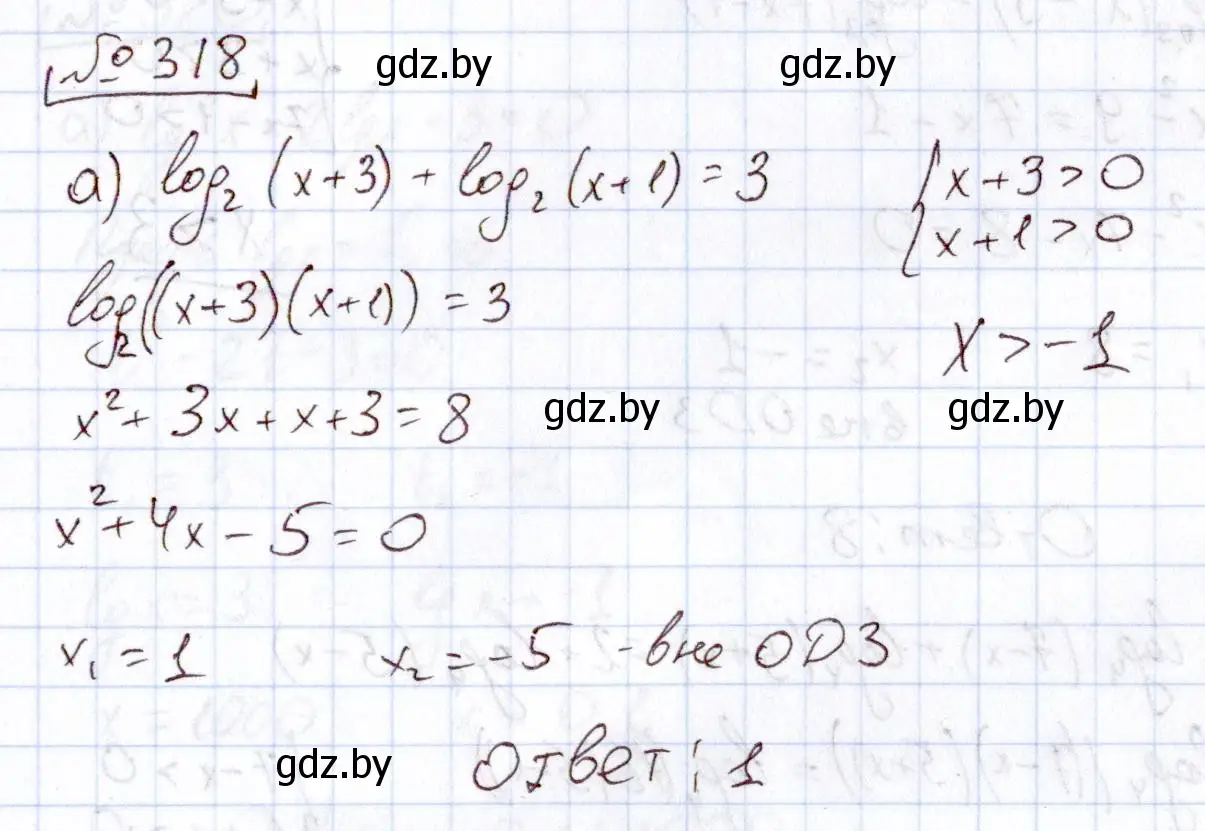 № 318
gdz.by gdz.by
а) log₂ (x+3) + log₂ (x+1) = 3
{ x+3>0
x+1>0
log₂((x+3)(x+1)) = 3
x > -1
x² + 3x + x + 3 = 8
gdz.by gdz.by
x² + 4x - 5 = 0
x₁ = 1 x₂ = -5 - вне ОДЗ
gdz.by
Ответ: 1